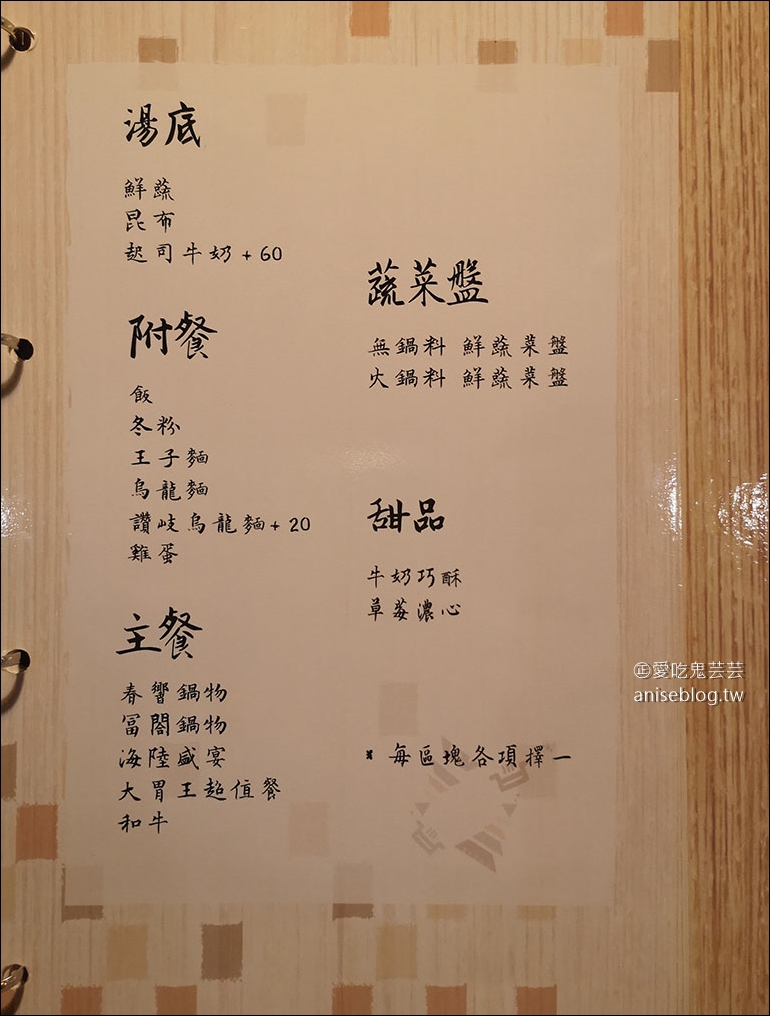 湯底
鮮蔬
昆布
起司牛奶+60
附餐
飯
冬粉
王子麵
烏龍麵
讚岐烏龍麵+20
雞蛋
主餐
春響鍋物
富閣鍋物
海陸盛宴
大胃王超值餐
和牛
蔬菜盤
無鍋料 鮮蔬菜盤
火鍋料 鮮蔬菜盤
甜品
牛奶巧酥
草莓濃心
* 每區塊各項擇一
㊣愛吃鬼芸芸
aniseblog.tw